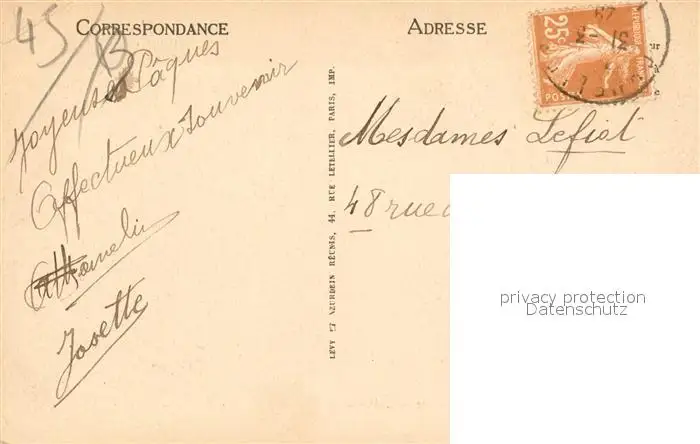 45
CORRESPONDANCE
ADRESSE
Joyeuses Pâques
Affectueux Souvenir
Hamelin
Josette
LÉVY ET NEURDEIN RÉUNIS, 44, RUE LETELLIER, PARIS, IMP.
25c
POSTES
Mesdames Lefiot
48 rue
privacy protection
Datenschutz